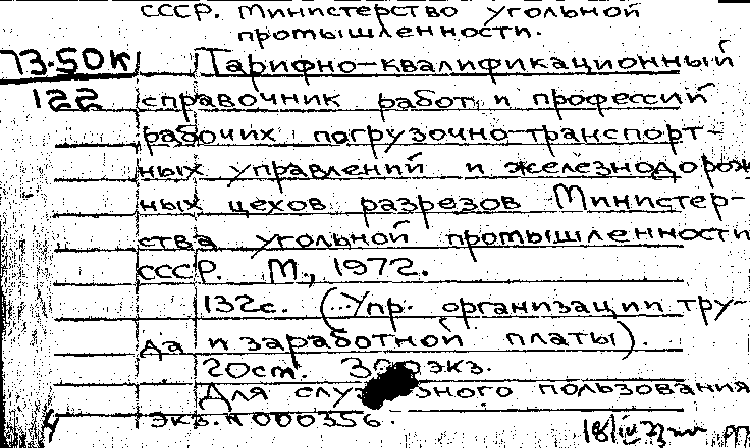 СССР. Министерство угольной
промышленности.
73.50к Тарифно-квалификационный
122 справочник работ и профессий
рабочих погрузочно-транспорт-
ных управлений и железнодорож
ных цехов разрезов Министер-
ства угольной промышленности
СССР. М., 1972.
132с. (Упр. организации тру-
да и заработной платы).
20см. экз.
Для пользования
экз. N 000356.